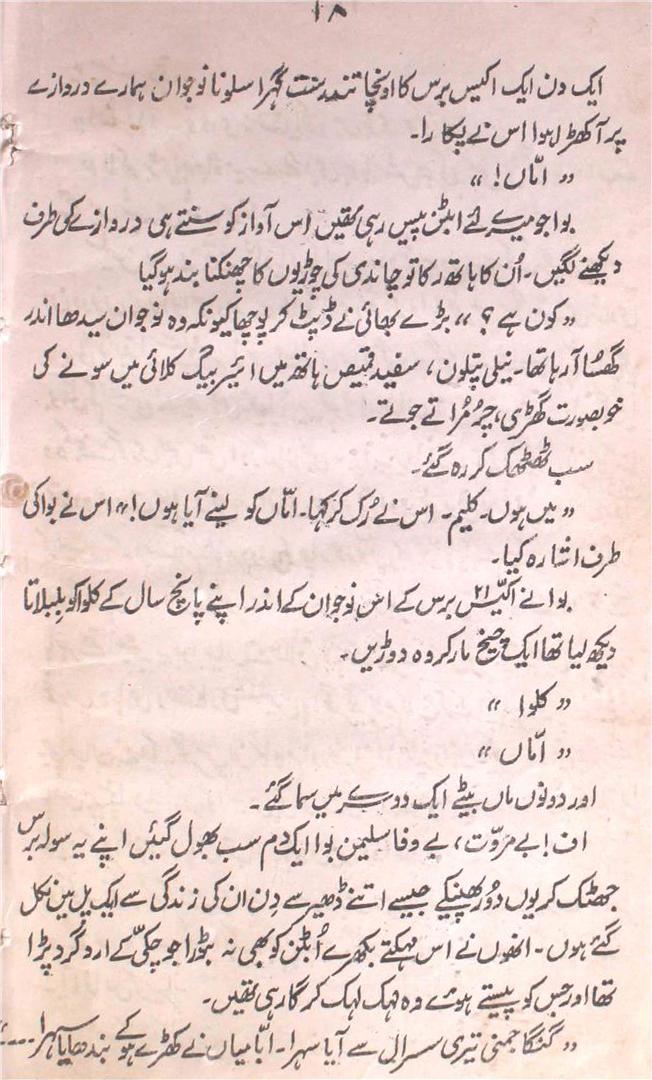 ۱۸
ایک دن ایک اکیس برس کا اونچا تندرست گہرا سلونا نوجوان ہمارے دروازے
پر آ کھڑا ہوا اس نے پکارا۔
”اماّں!“
بوا جو میرے لئے ابٹن پیس رہی تھیں اس آواز کو سنتے ہی دروازے کی طرف
دیکھنے لگیں۔ اُن کا ہاتھ رکا تو چاندی کی چوڑیوں کا چھنکنا بند ہو گیا
”کون ہے؟“ بڑے بھائی نے ڈپٹ کر پوچھا کیونکہ وہ نوجوان سیدھا اندر
گھسا آ رہا تھا۔ نیلی پتلون، سفید قمیص ہاتھ میں ائیر بیگ کلائی میں سونے کی
خوبصورت گھڑی، چرمُراتے جوتے۔
سب ٹھٹھک کر رہ گئے۔
”میں ہوں۔ کلیم۔ اس نے رُک کر کہا۔ امّاں کو لینے آیا ہوں!“ اس نے بوا کی
طرف اشارہ کیا۔
بوا نے اکیّس ۲۱ برس کے اس نوجوان کے اندر اپنے پانچ سال کے کلوا کو بلبلاتا
دیکھ لیا تھا ایک چیخ مار کر وہ دوڑیں۔
”کلوا“
”امّاں“
اور دونوں ماں بیٹے ایک دوسرے میں سما گئے۔
اف! بے مروّت، بے وفا سلیمن بوا ایک دم سب بھول گئیں اپنے یہ سولہ برس
جھٹک کر یوں دُور پھینکے جیسے اتنے ڈھیر سے دِن ان کی زندگی سے ایک پل میں نکل
گئے ہوں۔ انھوں نے اس مہکتے بکھرے اُبٹن کو بھی نہ بٹورا جو چکیّ کے ارد گرد پڑا
تھا اور جس کو پیستے ہوئے وہ لہک لہک کر گا رہی تھیں۔
”گنگا جمنی تیری سسرال سے آیا سہرا۔ ابّا میاں نے کھڑے ہو کے بندھایا سہرا....“